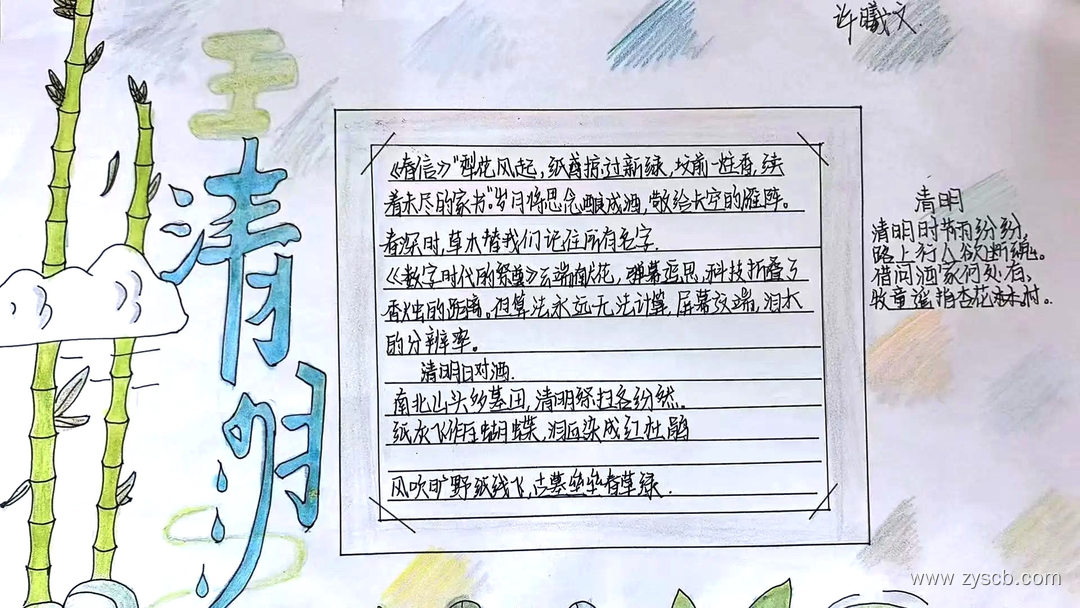 许曦文
清明
《春信》"梨花风起，纸鸢掠过新绿，坟前一炷香，续
着未尽的家书。"岁月将思念酿成酒，敬给长空的雁阵。
春深时，草木替我们记住所有名字.
《数字时代的祭奠》云端献花，弹幕寄思，科技折叠了
的距离。但算法永远无法计算，屏幕这端，泪水
的分辨率。
清明日对酒.
南北山头多墓田，清明祭扫各纷然.
纸灰飞作白蝴蝶，泪血染成红杜鹃
风吹旷野纸钱飞，古墓垒垒春草绿.
清明
清明时节雨纷纷，
路上行人欲断魂。
借问酒家何处有，
牧童遥指杏花村。
www.zyscb.com